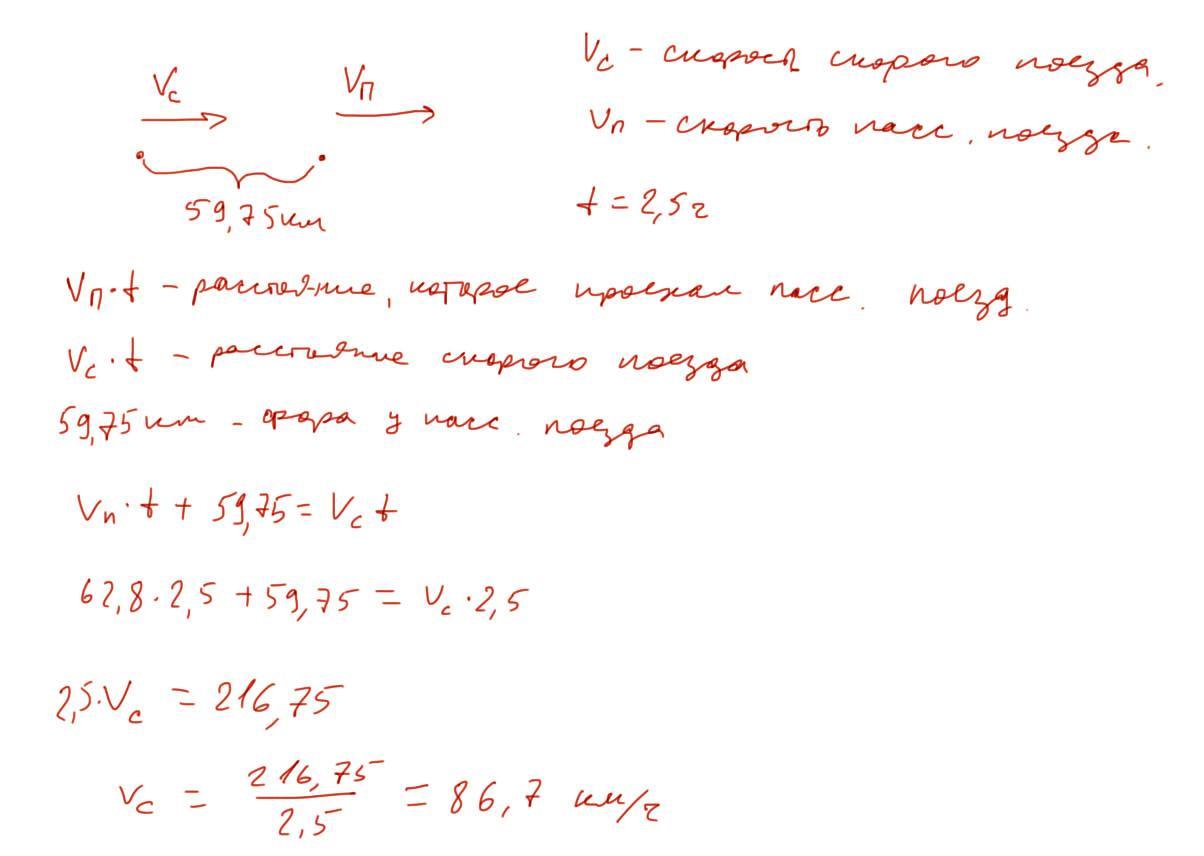 Vс Vп
59,75км
Vс – скорость скорого поезда.
Vп – скорость пасс. поезда.
t = 2,5ч
Vп·t – расстояние, которое проехал пасс. поезд.
Vс·t – расстояние скорого поезда
59,75 км – фора у пасс. поезда
Vп·t + 59,75 = Vс t
62,8·2,5 + 59,75 = Vс·2,5
2,5·Vс = 216,75
Vс = 216,75 / 2,5 = 86,7 км/ч